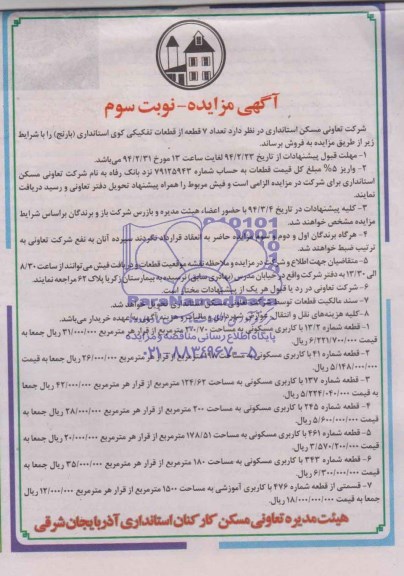 آگهی مزایده - نوبت سوم
شرکت تعاونی مسکن استانداری در نظر دارد تعداد ۷ قطعه از قطعات تفکیکی کوی استانداری (بارنج) را با شرایط
زیر از طریق مزایده به فروش برساند.
۱- مهلت قبول پیشنهادات از تاریخ ۹۴/۲/۲۳ لغایت ساعت ۱۳ مورخ ۹۴/۲/۳۱ می‌باشد.
۲- واریز ۵% مبلغ کل قیمت قطعات به حساب شماره ۷۹۱۲۵۹۴۳ نزد بانک رفاه به نام شرکت تعاونی مسکن
استانداری برای شرکت در مزایده الزامی است و فیش مربوط را همراه پیشنهاد تحویل دفتر تعاونی و رسید دریافت
نمایند.
۳- کلیه پیشنهادات در تاریخ ۹۴/۳/۴ با حضور اعضاء هیئت مدیره و بازرس شرکت باز و برندگان براساس شرایط
مزایده مشخص خواهند شد.
۴- هرگاه برندگان اول و دوم و سوم مزایده حاضر به انعقاد قرارداد نگردند سپرده آنان به نفع شرکت تعاونی به
ترتیب ضبط خواهند شد.
۵- متقاضیان جهت اطلاع و شرکت در مزایده و ملاحظه نقشه موقعیت قطعات و دریافت فیش می‌توانند از ساعت ۸/۳۰
الی ۱۳/۳۰ به دفتر شرکت واقع در خیابان مدرس (بهادری سابق) نرسیده به بیمارستان زکریا پلاک ۶۲ مراجعه نمایند.
۶- شرکت تعاونی در رد یا قبول هر یک از پیشنهادات مختار است.
۷- سند مالکیت قطعات توسط شرکت تعاونی خواهد شد.
۸- کلیه هزینه‌های نقل و انتقال، عوارض شهرداری و مالیات و هزینه به عهده خریدار می‌باشد.
۱- قطعه شماره ۱۳/۲ با کاربری مسکونی به مساحت ۲۷۰/۷۰ مترمربع از قرار هر مترمربع ۳۱/۰۰۰/۰۰۰ ریال جمعا به
قیمت ۶/۲۲۱/۷۰۰/۰۰۰
۲- قطعه شماره ۴۱ با کاربری مسکونی به مساحت مترمربع از قرار هر مترمربع ۲۶/۰۰۰/۰۰۰ ریال جمعا به قیمت
۵/۱۴۸/۰۰۰/۰۰۰ ریال
۳- قطعه شماره ۱۳۷ با کاربری مسکونی به مساحت ۱۲۴/۶۲ مترمربع از قرار هر مترمربع ۴۲/۰۰۰/۰۰۰ ریال جمعا
به قیمت ۵/۲۳۴/۰۴۰/۰۰۰ ریال
۴- قطعه شماره ۲۴۵ با کاربری مسکونی به مساحت ۲۰۰ مترمربع از قرار هر مترمربع ۲۸/۰۰۰/۰۰۰ ریال جمعا به
قیمت ۵/۶۰۰/۰۰۰/۰۰۰ ریال
۵- قطعه شماره ۴۶۱ با کاربری مسکونی به مساحت ۱۷۸/۵۱ مترمربع از قرار هر مترمربع ۲۰/۰۰۰/۰۰۰ ریال جمعا به
قیمت ۳/۵۷۰/۲۰۰/۰۰۰ ریال
۶- قطعه شماره ۳۴۳ با کاربری مسکونی به مساحت ۱۸۰ مترمربع از قرار هر مترمربع ۳۵/۰۰۰/۰۰۰ ریال جمعا به
قیمت ۶/۳۰۰/۰۰۰/۰۰۰ ریال
۷- قسمتی از قطعه شماره ۴۷۶ با کاربری آموزشی به مساحت ۱۵۰۰ مترمربع از قرار هر مترمربع ۱۲/۰۰۰/۰۰۰ ریال
جمعا به قیمت ۱۸/۰۰۰/۰۰۰/۰۰۰ ریال
هیئت مدیره تعاونی مسکن کارکنان استانداری آذربایجان شرقی
پایگاه اطلاع رسانی مناقصه و مزایده
۰۲۱-۸۸۳۴۹۶۷۰-۵